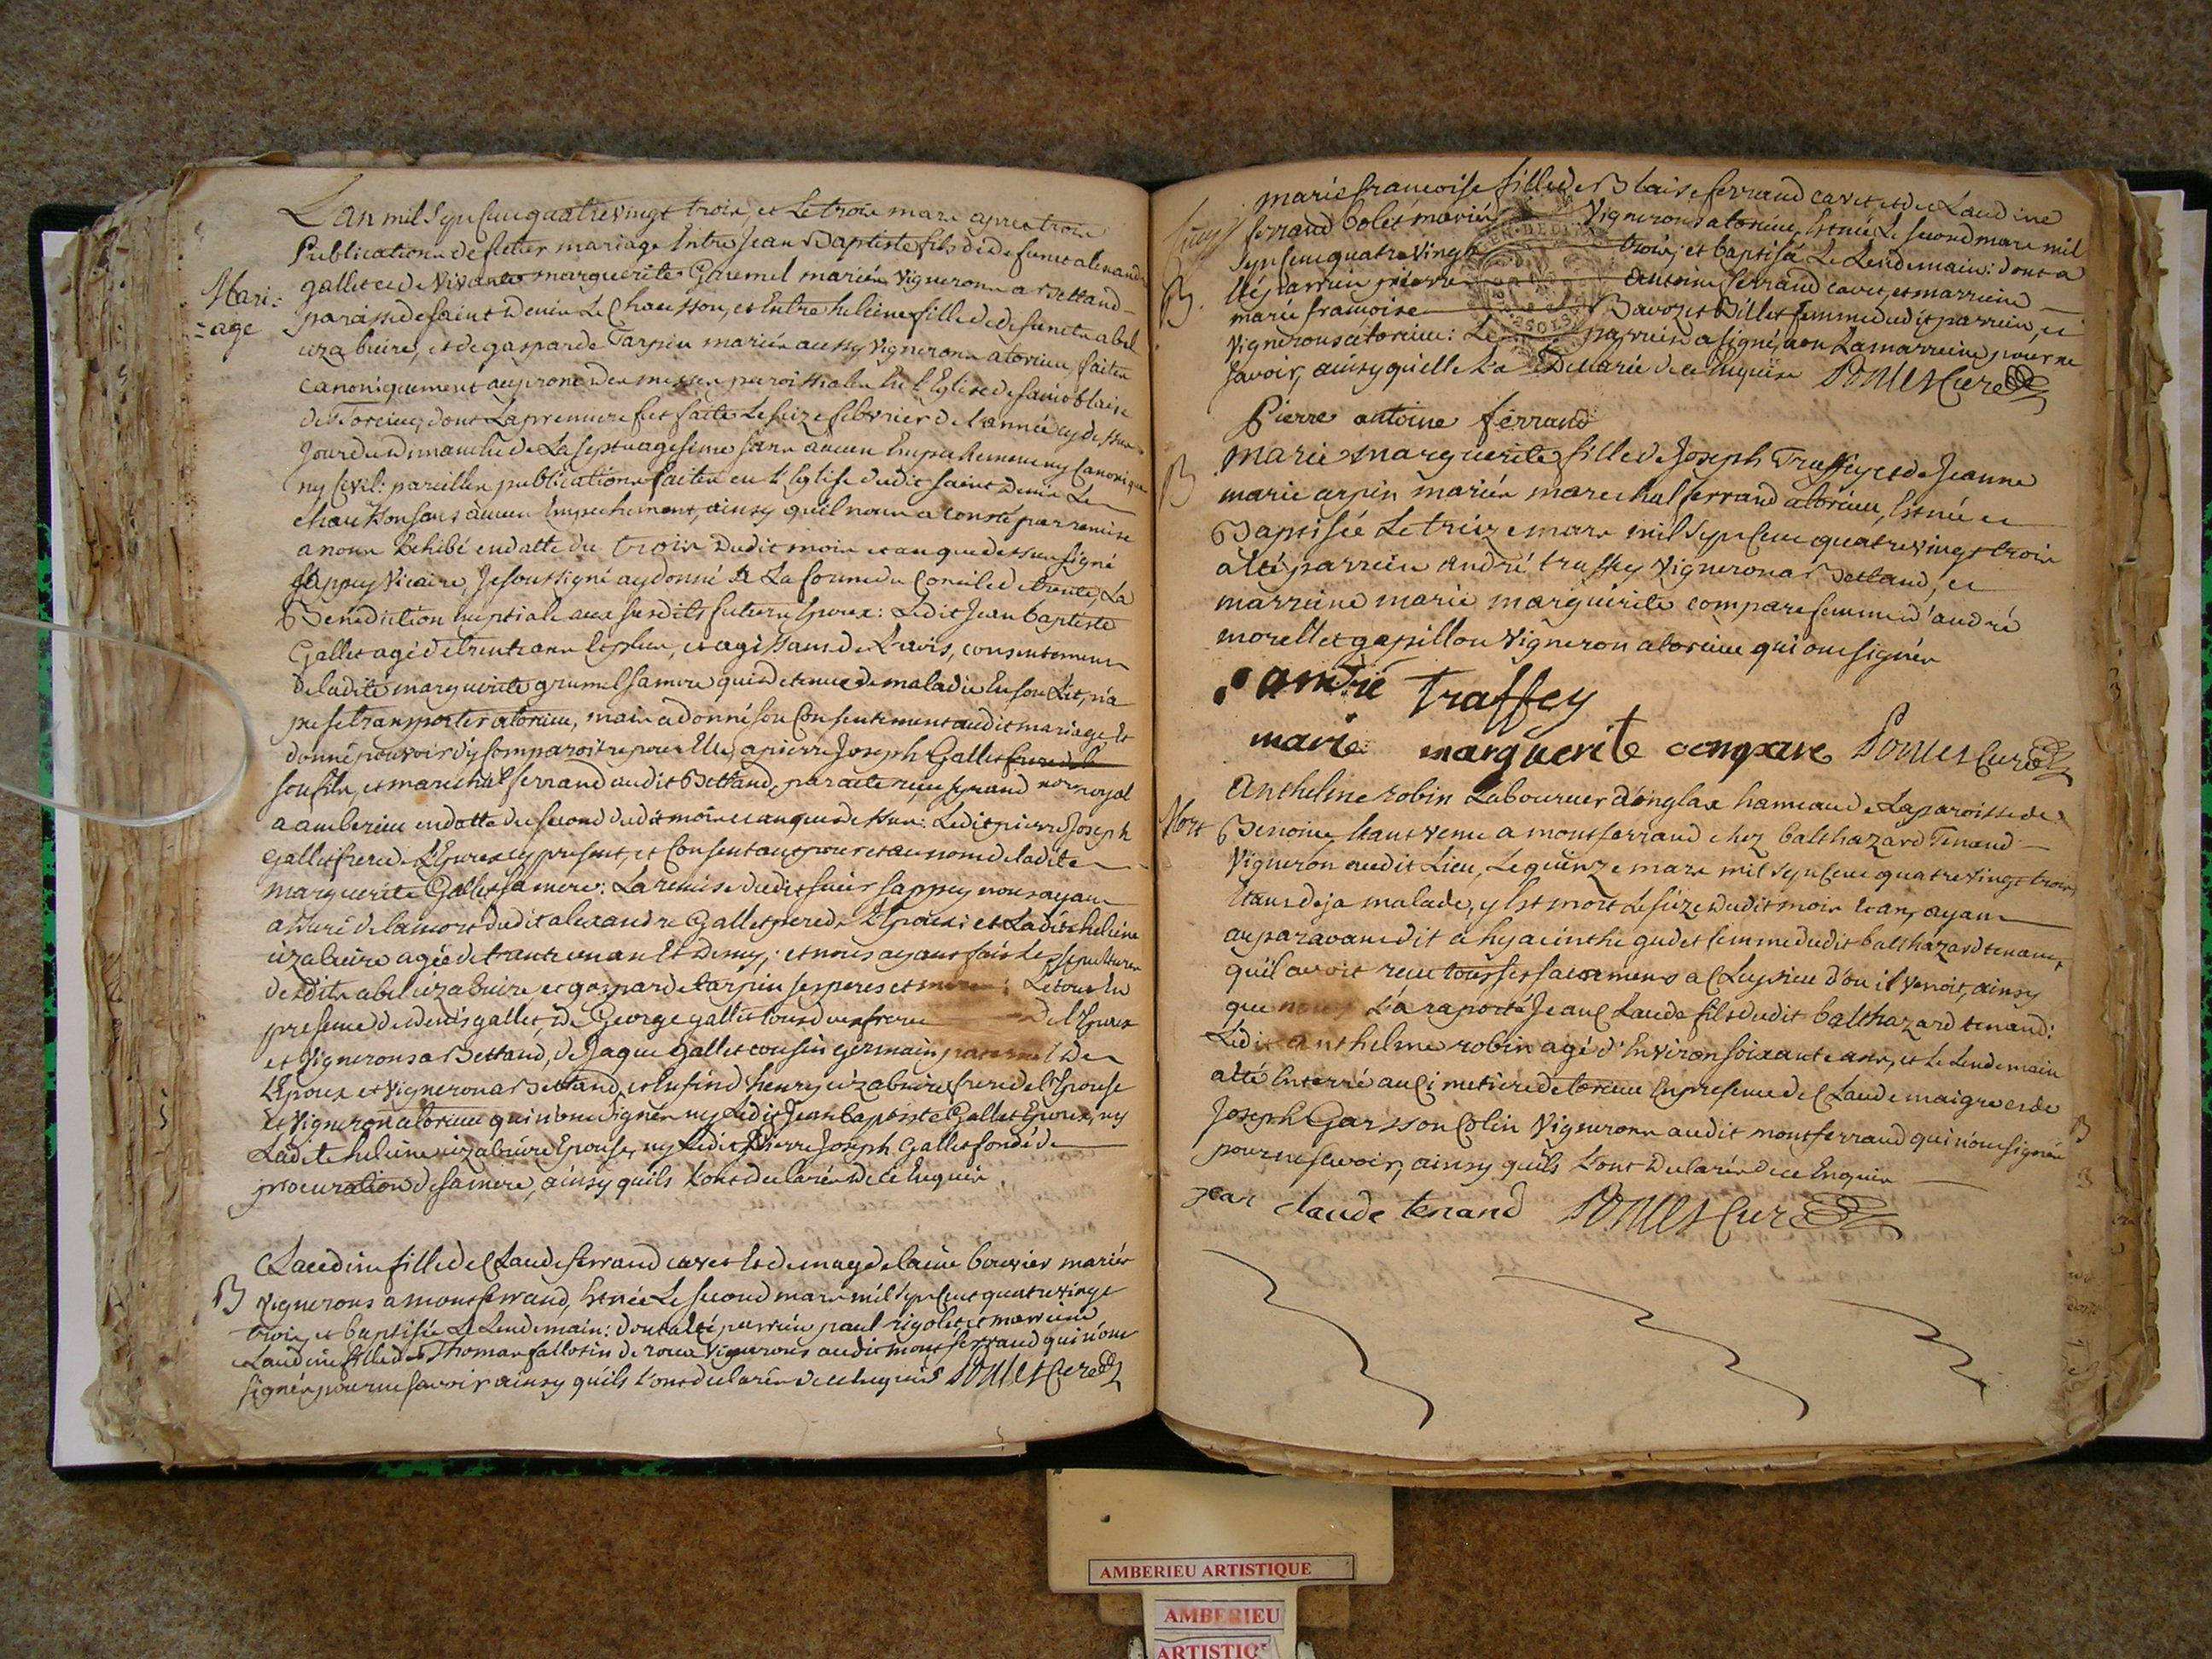 L'an mil sept cent quatre vingt trois, et le trois mars apres trois
Publications de futur mariage entre Jean Baptiste fils de defunct alexandre
gallet et de vivante marguerite Grumel mariés vignerons a Bettand
Mari=
=age
paroisse de saint Denis Le Chausson, et entre heleine fille de defuncts abel
uzabuire, et de gasparde Tarpin mariés aussy vignerons a torcieu, faites
canoniquement au prone des messes paroissiales en l'Eglise de saint blaise
de torcieu, dont la premiere fut faite le seize febvrier de l'année cy dessus
jour du dimanche de La septuagesime sans aucun empechement ny canonique
ny Civil: pareilles publications faites en l'Eglise dudit saint Denis Le
chausson sans aucun empechement, ainsy qu'il nous a consté par remise
a nous exhibé en datte du trois dudit mois et an que dessus signé
sappey vicaire, Je soussigné ay donné a la forme du Concile de trente, La
Benediction nuptiale aux susdits futurs Epoux: Ledit Jean baptiste
Gallet agé de trente ans et plus, et agissant de l'avis, consentement
de ladite marguerite grumel sa mere qui detenue de maladie en son Lit, n'a
pu se transporter a torcieu, mais a donné son consentement audit mariage et
donné pouvoir d'y comparoitre pour Elle, a pierre Joseph Gallet frere de le
son fils, et marechal ferrand audit Bettand, par acte reçu ferrand nore royal
a amberieu en datte du second dudit mois et an que dessus: Ledit pierre Joseph
Gallet frere de L'Epoux cy present, et Consentant pour et au nom de ladite
marguerite Gallet sa mere: La remise dudit sieur sappey nous ayant
assuré de la mort dudit alexandre Gallet pere de L'Epoux: et Ladite heleine
uzabuire agée de trante un an et demy; et nous ayant fais les sepultures
desdits abel uzabuire et gasparde tarpin ses peres et meres: Le tout en
presence de denis gallet, de George gallet tous deux freres de l'Epoux
et vignerons a Bettand, de Jaque Gallet cousin germain paternel de
L'Epoux et vigneron a Bettand, et enfin d'henry uzabuire frere de l'Epouse
et vigneron a torcieu qui n'ont signés ny Ledit Jean baptiste Gallet Epoux, ny
Ladite heleine uzabuire Epouse, ny Ledit Pierre Joseph Gallet fondé de
procuration de sa mere, ainsy quils L'ont declarés de ce Enquis.
Claudine fille de Claude ferrand cavet et de magdelaine bouvier mariés
B
vignerons a montferrand, Est née Le second mars mil sept cent quatre vingt
trois, et baptisée Le Lendemain: dont a eté parrein paul rigolet et marreine
claudine fille de Thomas fallotin de roux vignerons audit montferrand qui n'ont
signés pour ne savoir ainsy qu'ils L'ont declarés de ce Enquis Poncet Curé
marie francoise fille de Blaise ferrand cavet et de Claudine
ferrand Colet mariés vignerons a torcieu, Est née Le second mars mil
sept cent quatre vingt trois, et baptisée Le Lendemain: dont a
B.
Eté parrein pierre antoine ferrand cavet, et marreine
marie francoise Bavozet Billet femme dudit parrein, et
vignerons a torcieu: Le parrein a signé, non La marreine pour ne
savoir, ainsy qu'elle L'a Declarée de ce Enquise Poncet Curé
Pierre antoine ferrand
B
marie marguerite fille de Joseph Traffey et de Jeanne
marie arpin mariés marechal ferrand a torcieu, Est née et
Baptisée Le treize mars mil sept cent quatre vingt trois
a eté parrein andré traffey vigneron a Bettand, et
marreine marie marguerite compare femme d'andré
morellet gapillon vigneron a torcieu qui ont signés
andré Traffey
marie marguerite compare Poncet Curé
Mort
anthelme robin Laboureur d'onglax hameau de La paroisse de
Benoine Etant venu a montferrand chez balthazard Tenand
vigneron audit Lieu, Le quinze mars mil sept cent quatre vingt trois,
Etant deja malade, y Est mort Le seize dudit mois Et an, ayant
auparavant dit a hyacinthe gudet femme dudit balthazard tenand
qu'il avoit reçu tous ses sacremens a Cleyzieu d'ou il venoit, ainsy
que nous L'a raporté Jean Claude fils dudit balthazard tenand:
Ledit anthelme robin agé d'Environ soixante ans, et Le Lendemain
a eté Enterré au Cimetiere de torcieu En presence de Claude maigre et de
Joseph Garsson Colin vignerons audit montferrand qui n'ont signés
pour ne savoir, ainsy quils L'ont Declarés de ce Enquis
jean claude tenand Poncet Curé
AMBERIEU ARTISTIQUE
AMBERIEU
ARTISTIQ